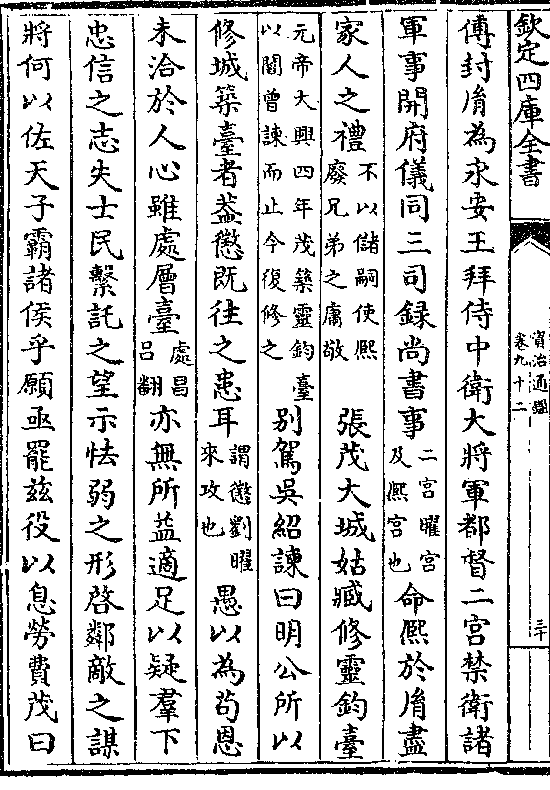 欽定四庫全書
資治通鑑
卷九十二
三十
傅封胤為永安王拜侍中衛大將軍都督二宫禁衛諸
軍事開府儀同三司録尚書事二宫曜宫及熈宫也命熈於胤盡
家人之禮不以儲嗣使熈廢兄弟之庸敬張茂大城姑臧修靈鈞臺
元帝大興四年茂築靈鈞臺以閻曾諫而止今復修之别駕吳紹諫曰明公所以
修城築臺者葢懲既往之患耳謂懲劉曜來攻也愚以為茍恩
未洽於人心雖處層臺處昌吕翻亦無所益適足以疑羣下
忠信之志失士民繫託之望示怯弱之形啓鄰敵之謀
將何以佐天子霸諸侯乎願亟罷兹役以息勞費茂曰